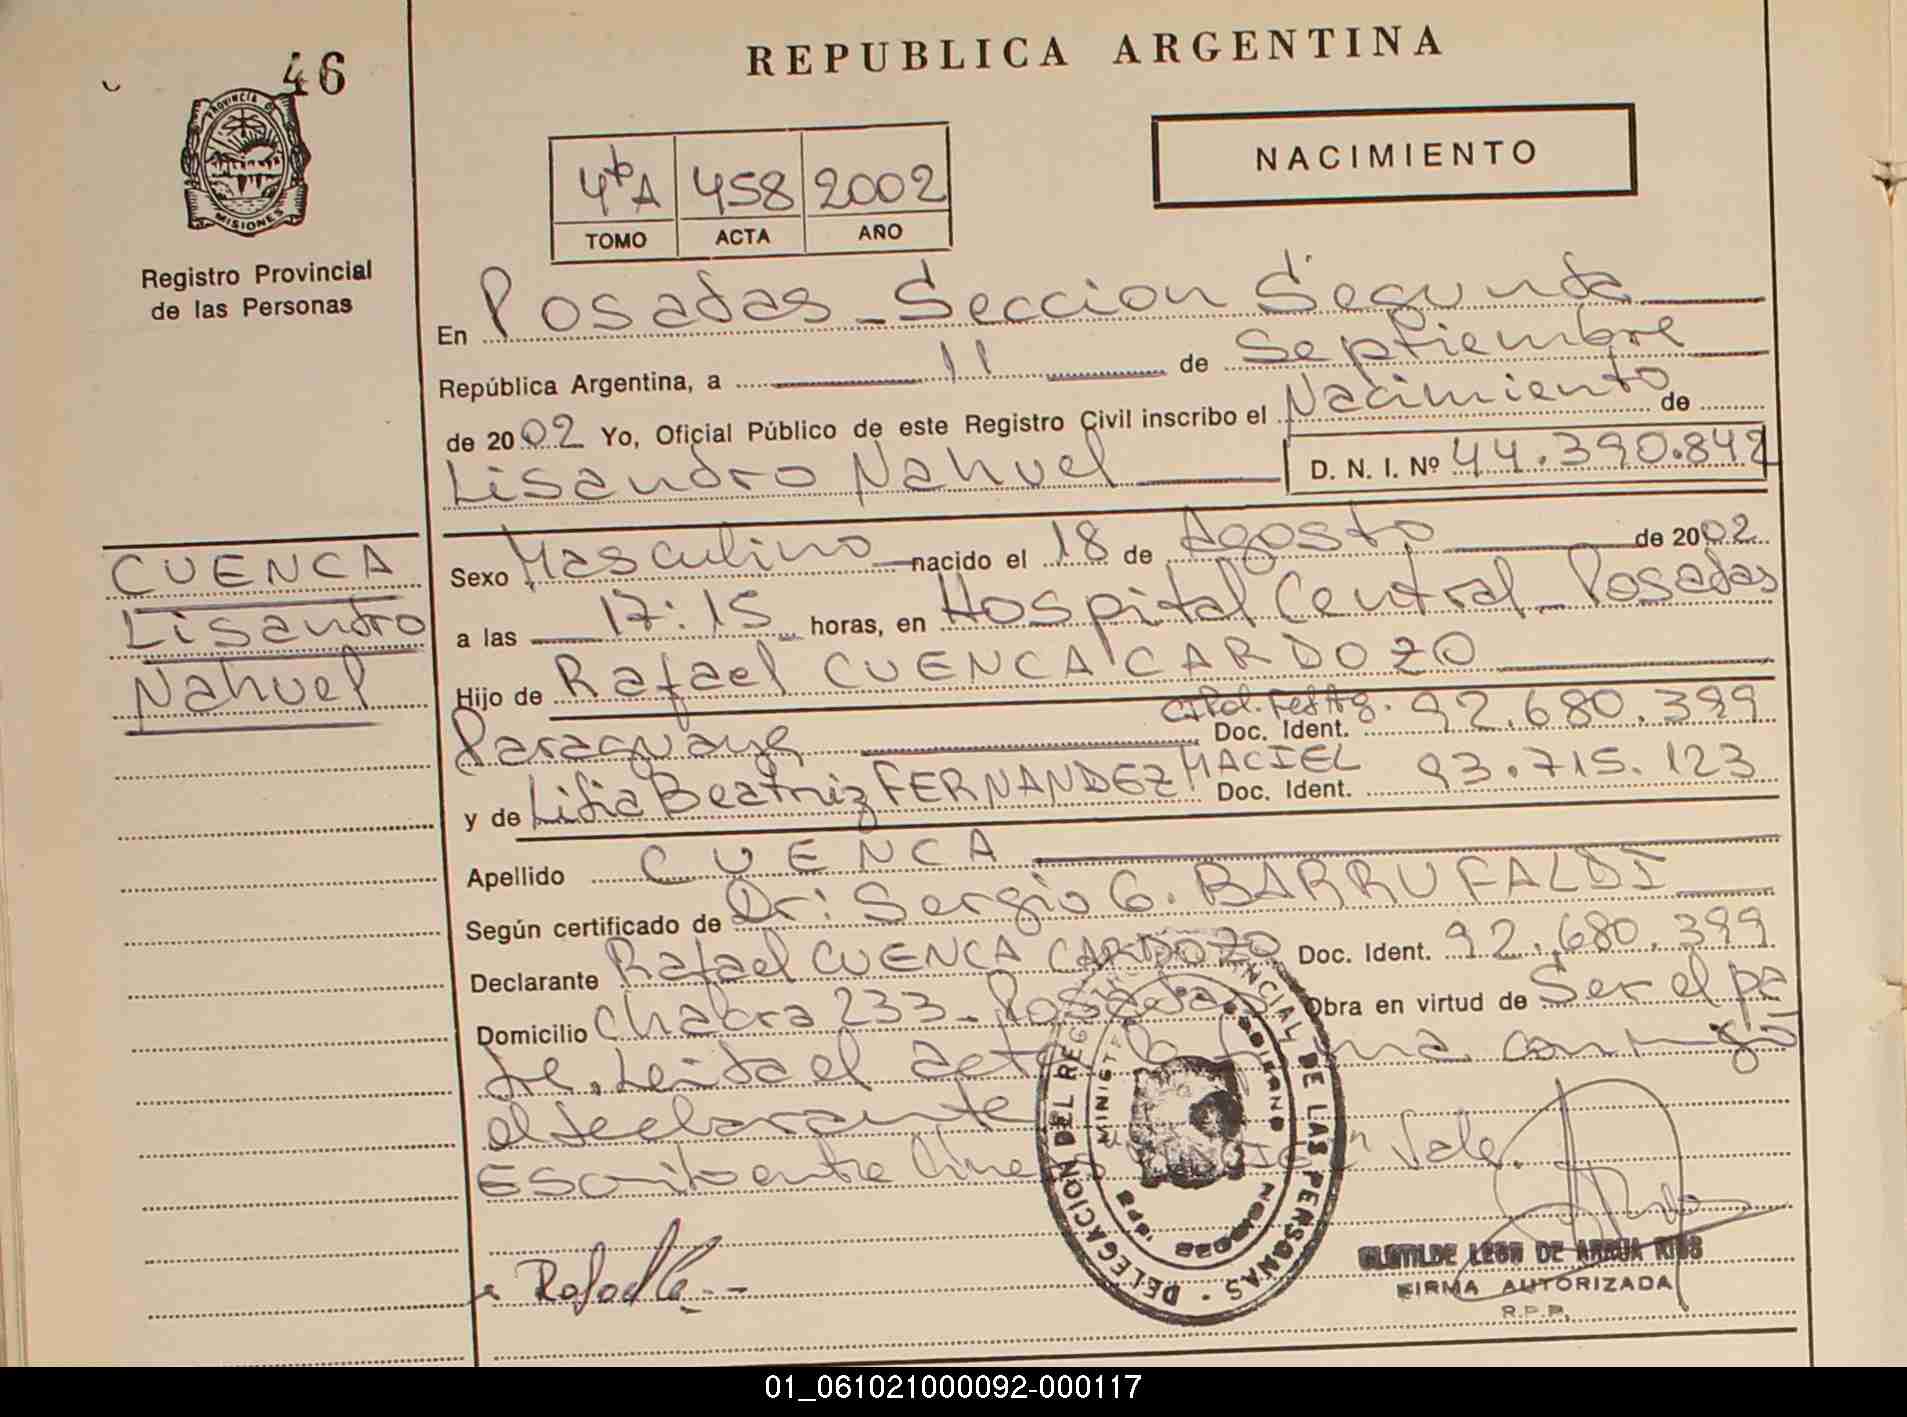 46
REPUBLICA ARGENTINA
PROVINCIA DE
MISIONES
Registro Provincial
de las Personas
NACIMIENTO
4tºA 458 2002
TOMO ACTA AÑO
En Posadas - Seccion Segunda
República Argentina, a 11 de Septiembre
de 2002 Yo, Oficial Público de este Registro Civil inscribo el Nacimiento de
Lisandro Nahuel D. N. I. Nº 44.390.842
CUENCA
Lisandro
Nahuel
Sexo Masculino nacido el 18 de Agosto de 2002
a las 17:15 horas, en Hospital Central - Posadas
Hijo de Rafael CUENCA CARDOZO
Paraguaya Doc. Ident. 92.680.399
y de Lidia Beatriz FERNANDEZ MACIEL Doc. Ident. 93.715.123
Apellido CUENCA
Según certificado de Dr: Sergio G. BARRUFALDI
Declarante Rafael CUENCA CARDOZO Doc. Ident. 92.680.399
Domicilio Chacra 233 - Posadas Obra en virtud de Ser el pa
dre. Leida el acta la firma conmigo
el declarante
Escrito entre Vale.
DELEGACION DEL REG PROVINCIAL DE LAS PERSONAS
MINISTE GOBIERNO
CLOTILDE LEON DE ARRUA RIOS
FIRMA AUTORIZADA
R.P.P.
01_061021000092-000117